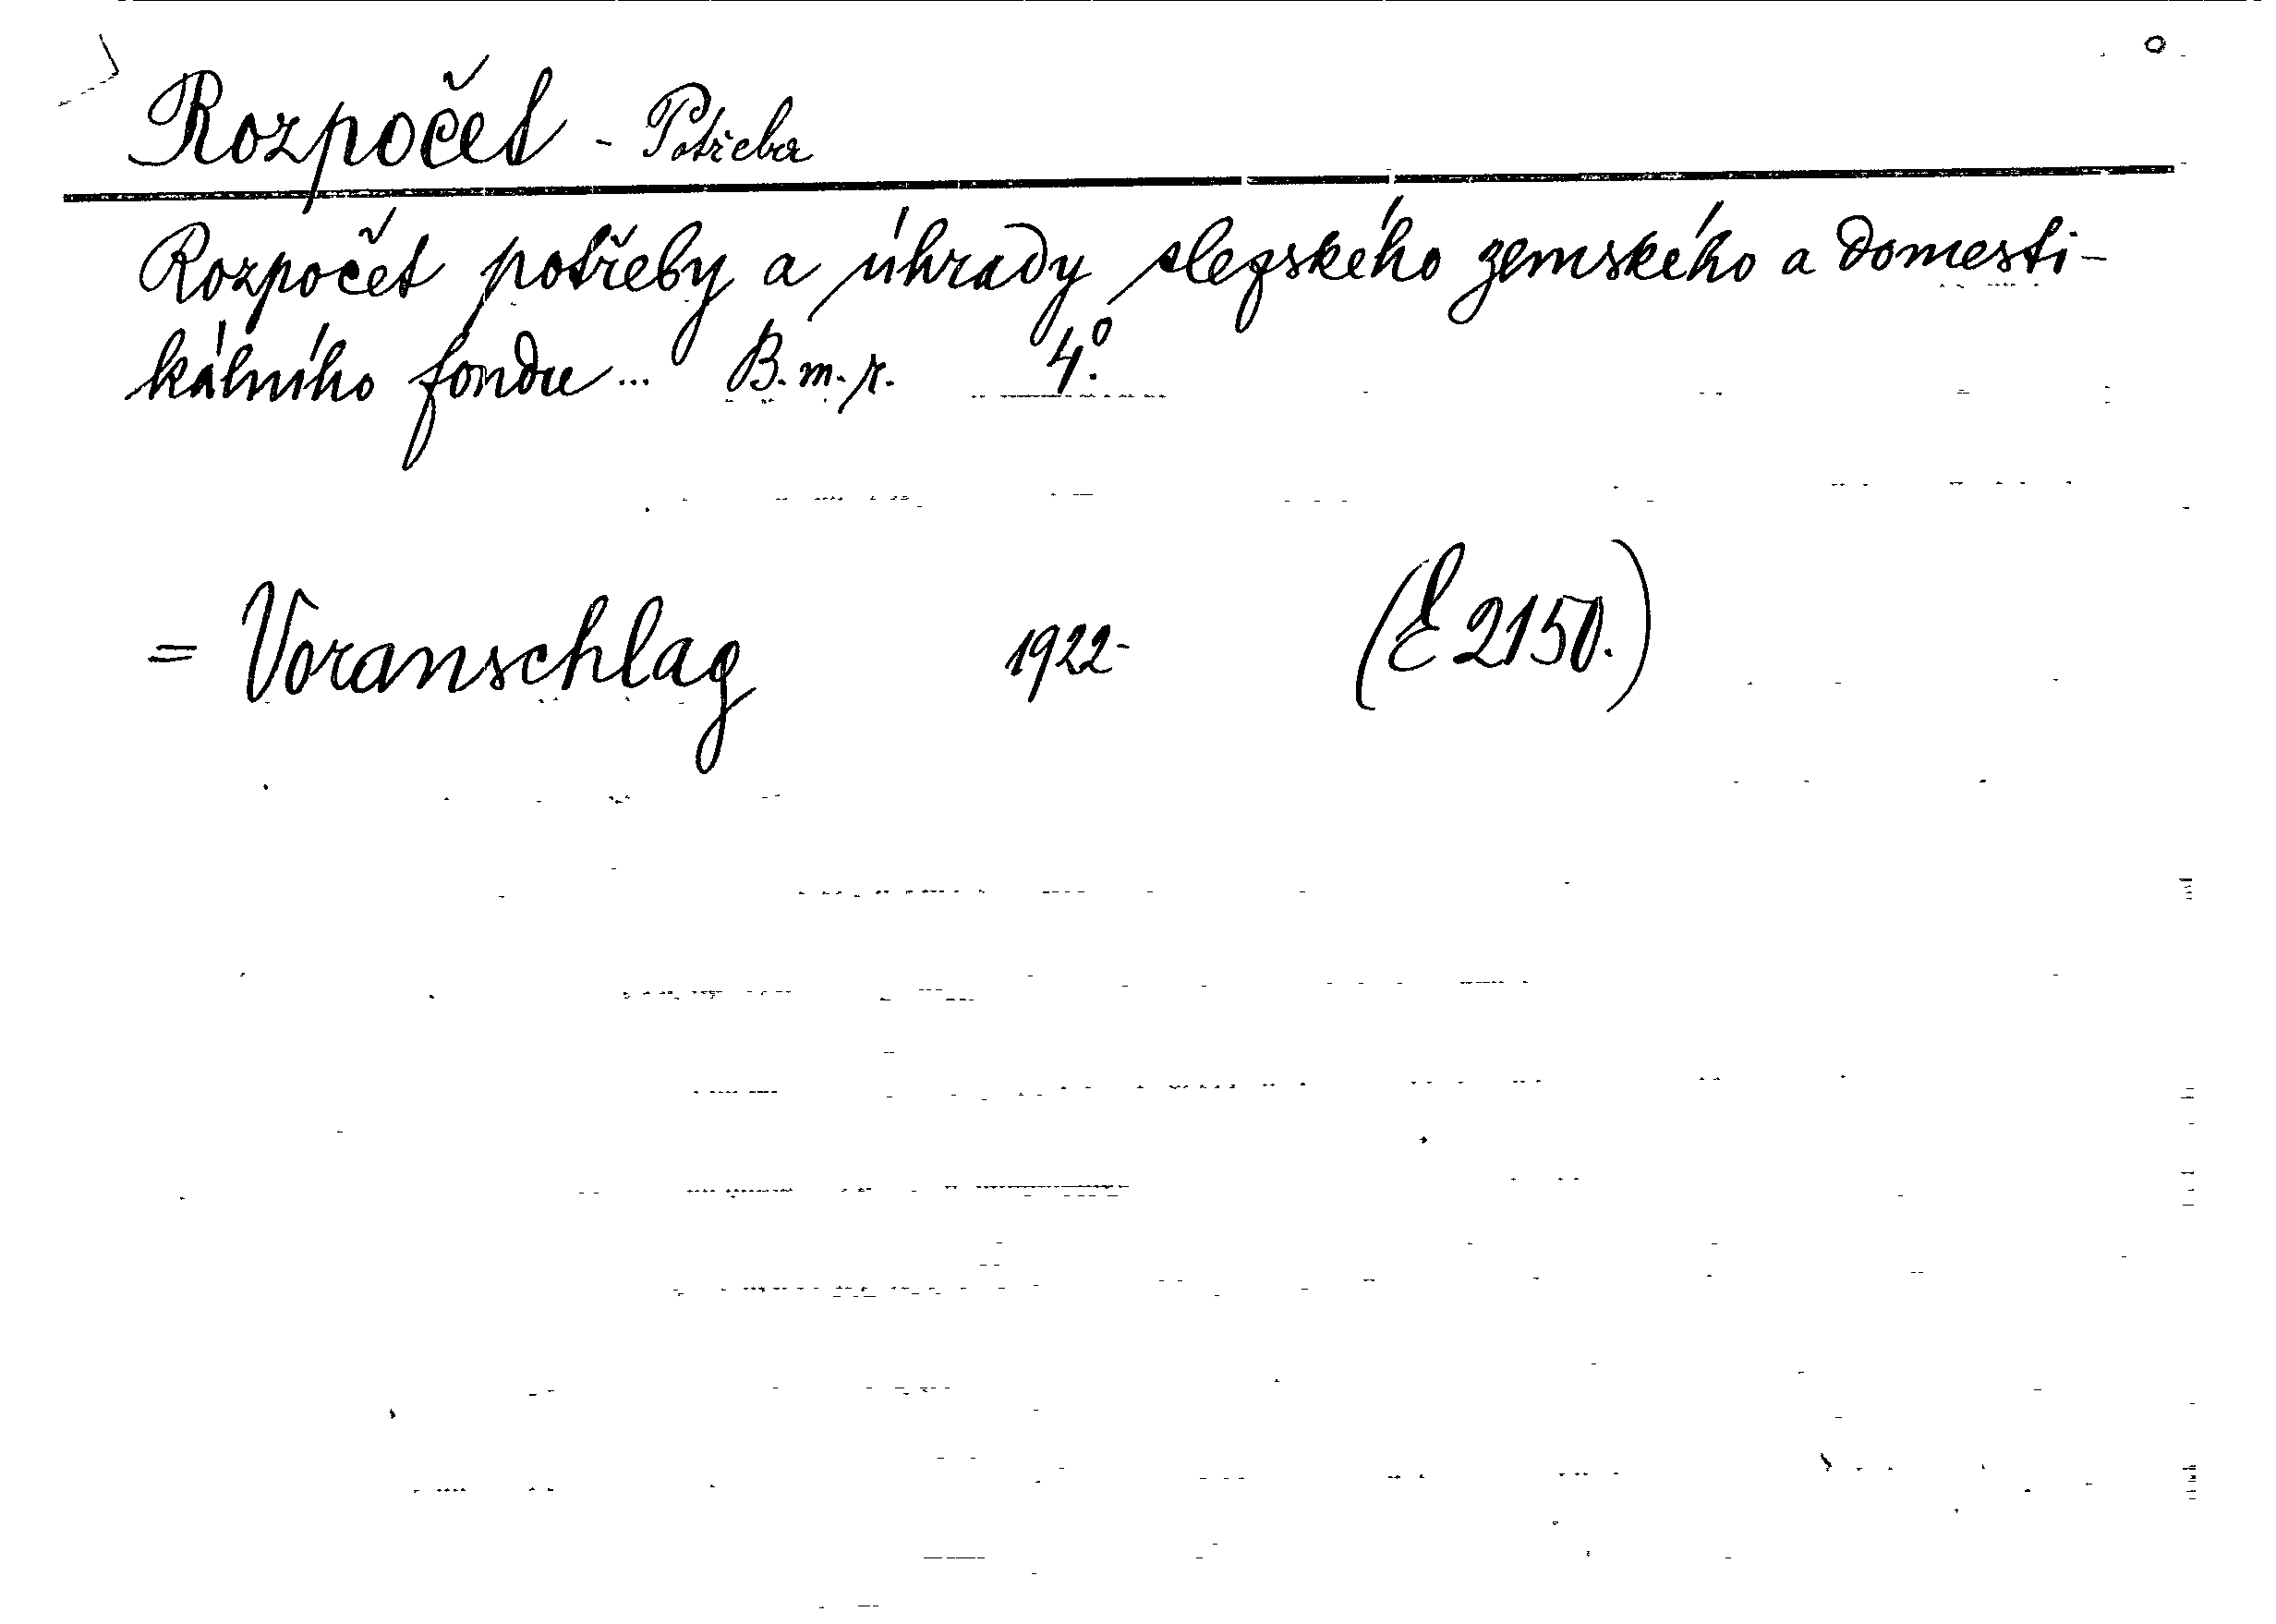 Rozpočet - Potřeba
Rozpočet potřeby a úhrady slezského zemského a domesti-
kálního fondu ... B. m. r. 4°.
= Voranschlag 1922- (E 2150.)